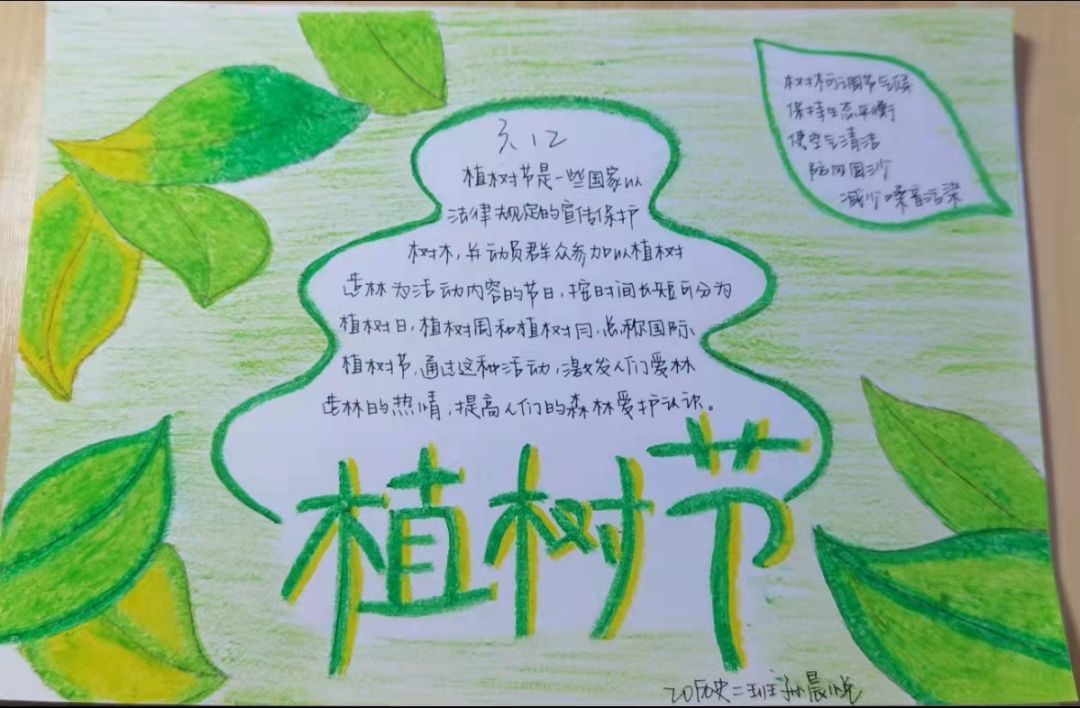 3.12
植树节是一些国家以
法律规定的宣传保护
树木,并动员群众参加以植树
造林为活动内容的节日,按时间长短可分为
植树日,植树周和植树月,总称国际
植树节,通过这种活动,激发人们爱林
造林的热情,提高人们的森林爱护认识。
植树节
树林可调节气候
保持生态平衡
使空气清洁
防风固沙
减少噪音污染
20历史二班孙晨悦